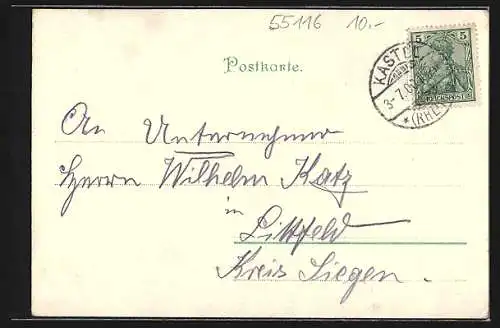 55116 10.-
5
REICHSPOST
KASTEL
3.7.0
* (RHE
Postkarte.
An Unternehmer
Herrn Wilhelm Katz
in
Littfeld
Kreis Siegen.